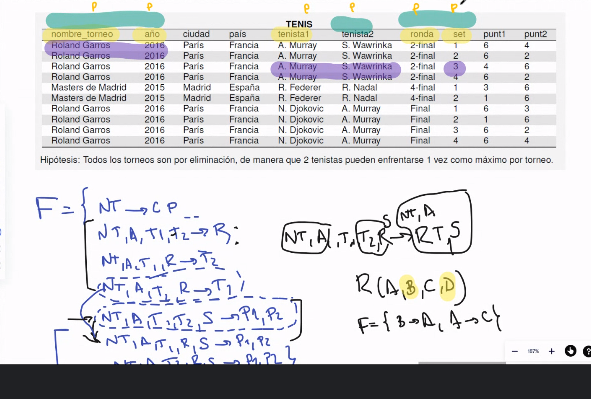 P P P P P P
TENIS
nombre_torneo año ciudad país tenista1 tenista2 ronda set punt1 punt2
Roland Garros 2016 París Francia A. Murray S. Wawrinka 2-final 1 6 4
Roland Garros 2016 París Francia A. Murray S. Wawrinka 2-final 2 6 2
Roland Garros 2016 París Francia A. Murray S. Wawrinka 2-final 3 4 6
Roland Garros 2016 París Francia A. Murray S. Wawrinka 2-final 4 6 2
Masters de Madrid 2015 Madrid España R. Federer R. Nadal 4-final 1 3 6
Masters de Madrid 2015 Madrid España R. Federer R. Nadal 4-final 2 1 6
Roland Garros 2016 París Francia N. Djokovic A. Murray Final 1 6 3
Roland Garros 2016 París Francia N. Djokovic A. Murray Final 2 1 6
Roland Garros 2016 París Francia N. Djokovic A. Murray Final 3 6 2
Roland Garros 2016 París Francia N. Djokovic A. Murray Final 4 6 4
Hipótesis: Todos los torneos son por eliminación, de manera que 2 tenistas pueden enfrentarse 1 vez como máximo por torneo.
F = { NT → C P
NT, A, T1, T2 → R
NT, A, T1, R → T2
NT, A, T2 R → T1
NT, A, T1, T2, S → P1, P2
NT, A, T1, R, S → P1, P2
NT, A, T2, R, S → P1, P2 }
NT, A, T1, T2, R → R T1 S
S NT, A
R(A, B, C, D)
F = { B → A, A → C }
167%